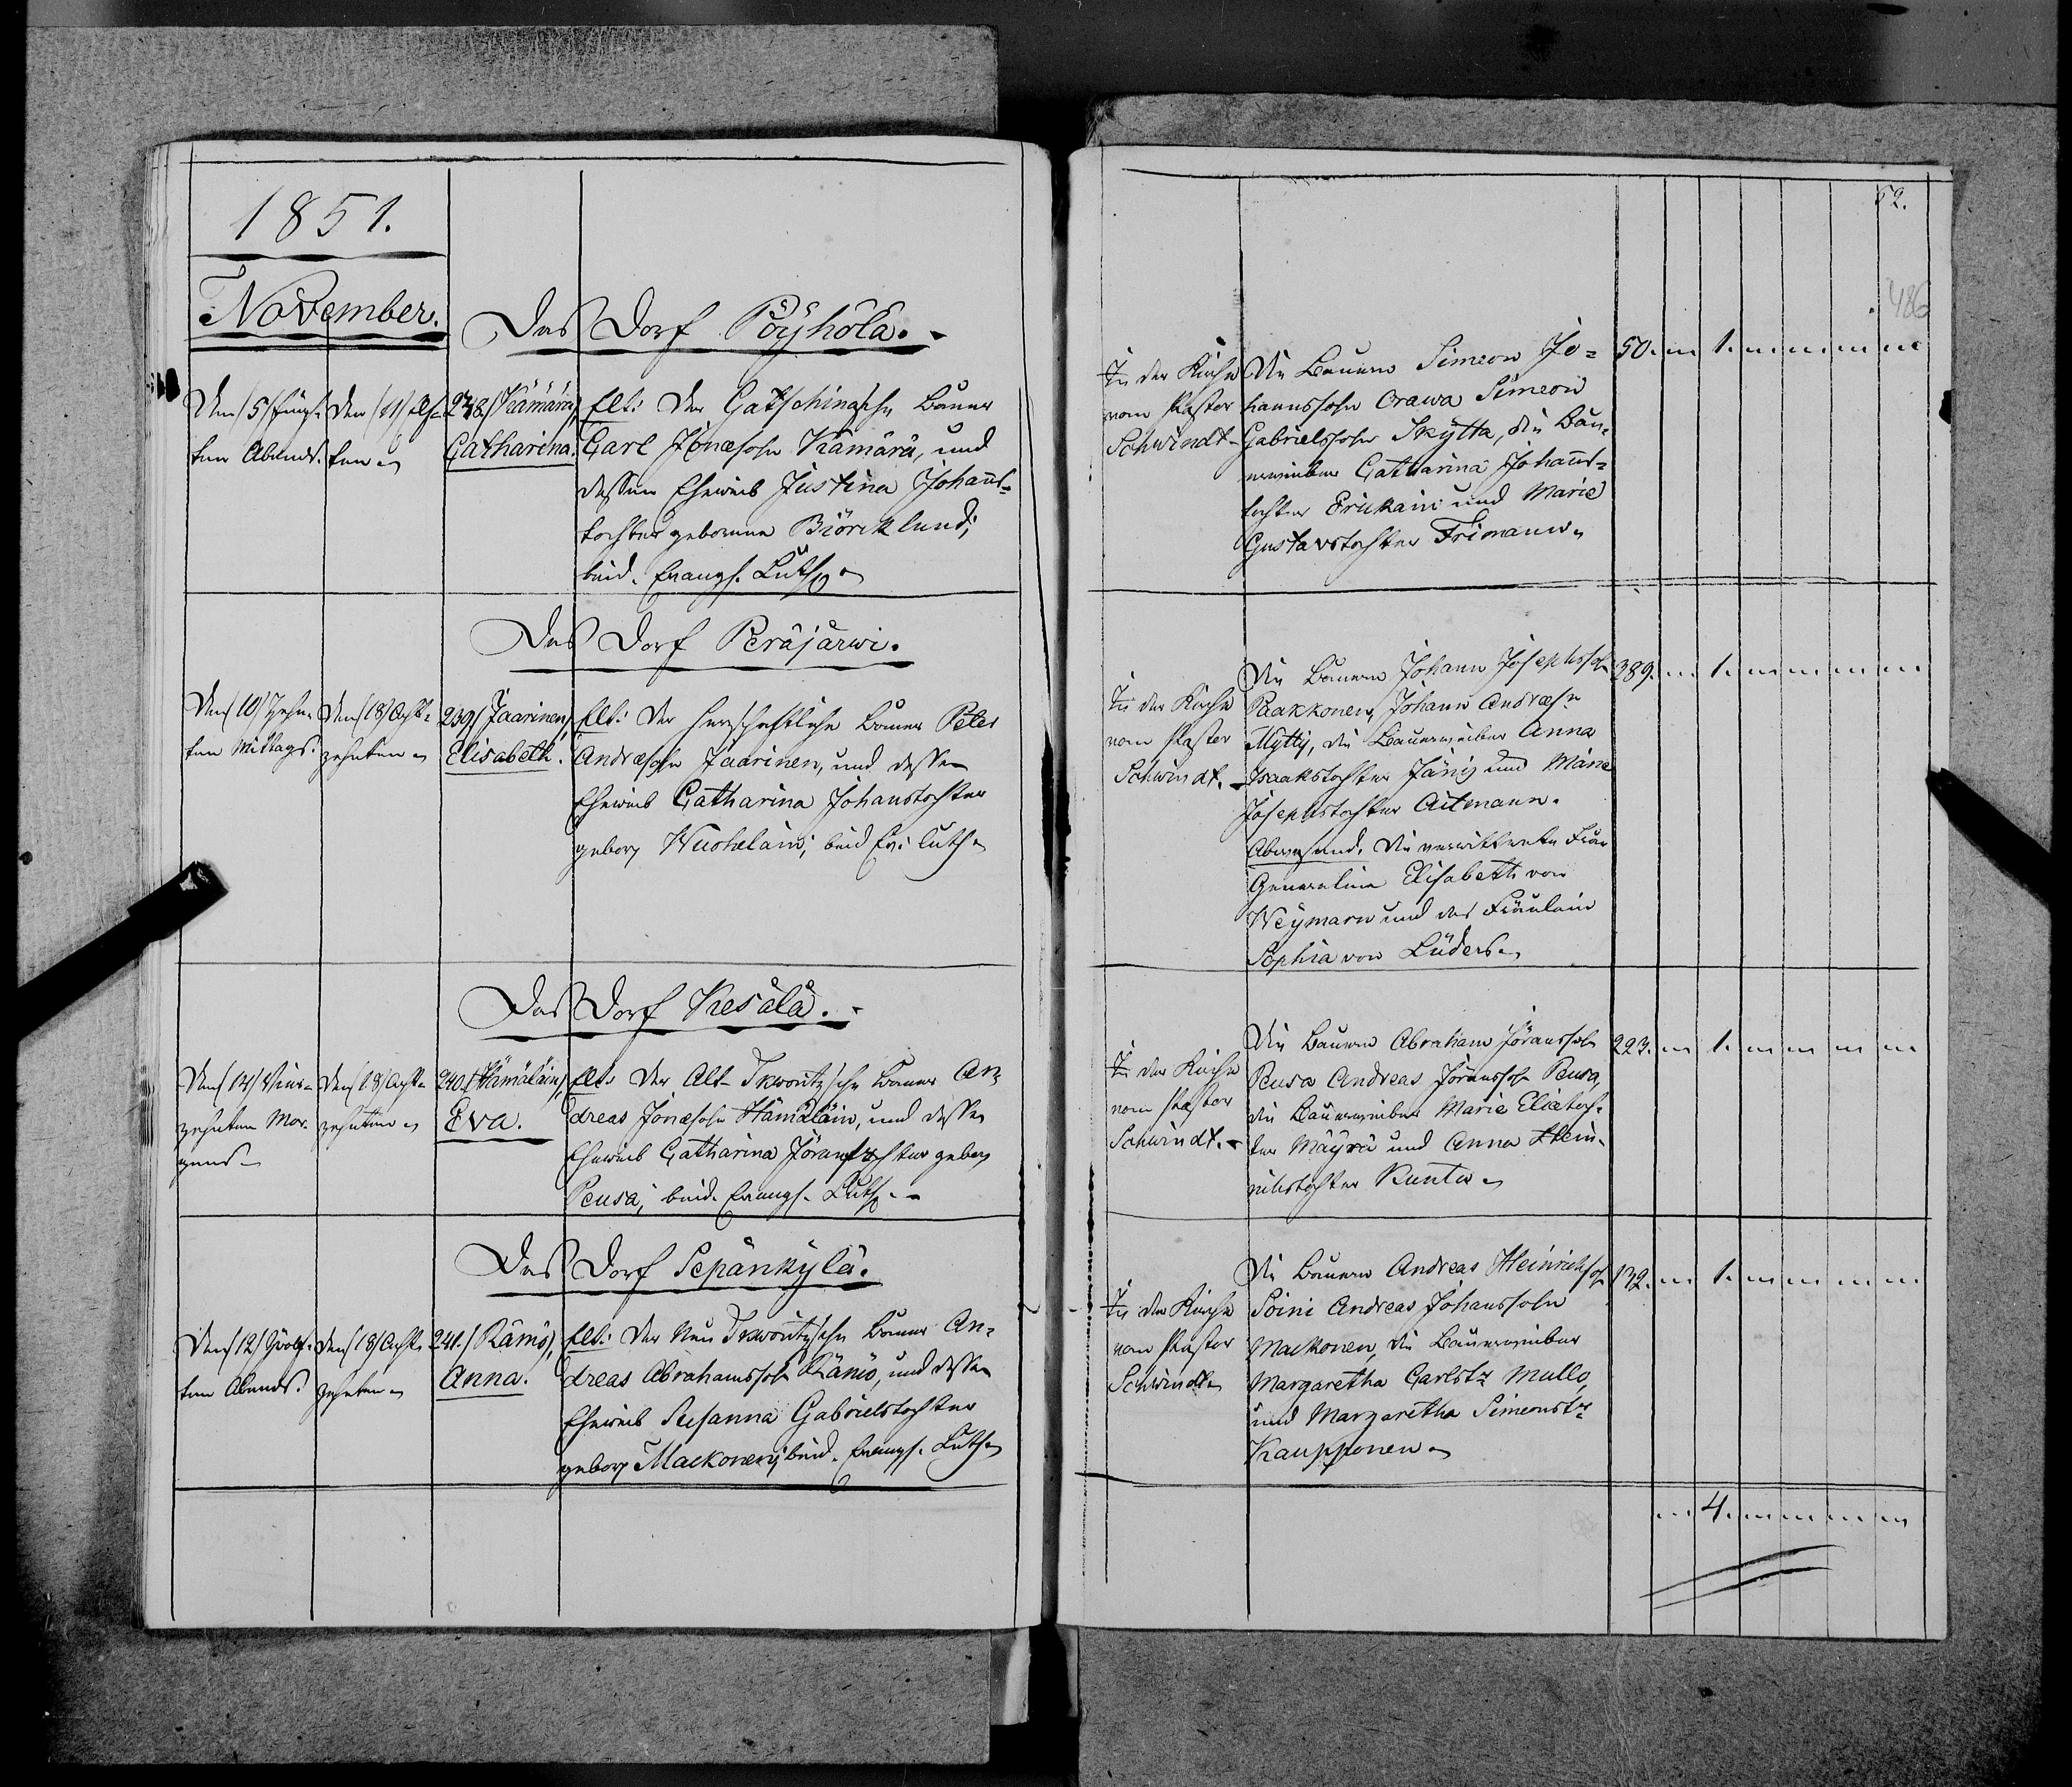 1851.
November.
Das Dorf Pöyhölä.
Den /5/ fünf-
ten Abends.
Den /11/ elf-
ten
238./ Kämärä,
Catharina.
Elt: Der Gatschinasche Bauer
Carl Jonassohn Kämärä, und
dessen Eheweib Justina Johanns-
tochter geborene Biörcklund;
beid. Evangl. Luth.
Das Dorf Peräjärwi.
Den /10/ Zehn-
ten Mittags.
Den /18/ Acht-
zehnten
239/ Jaarinen,
Elisabeth.
Elt: Der herrschaftliche Bauer Peter
Andreassohn Jaarinen, und dessen
Eheweib Catharina Johanstochter
gebor. Wuohelain; beid. Ev: Luth.
Das Dorf Kesälä.
Den /14/ Vier-
zehnten Mor-
gens
Den /18/ Acht-
zehnten
240./ Hämäläin,
Eva.
Elt: Der Alt-Skworitzsche Bauer An-
dreas Jonassohn Hämäläin, und dessen
Eheweib Catharina Jöranstochter gebor.
Peusa; beid. Evangl. Luth.
Das Dorf Sepänkylä.
Den /12/ Zwölf-
ten Abends.
Den /18/ Acht-
zehnten
241./ Rämö,
Anna.
Elt: Der Neu Skworitzsche Bauer An-
dreas Abrahamssohn Rämö, und dessen
Eheweib Susanna Gabrielstochter
gebor. Mackonen; beid. Evangl. Luth.
52.
486
In der Kirche
vom Pastor
Schwindt
Die Bauern Simeon Jo-
hannssohn Orawa Simeon
Gabrielssohn Skyttä, die Bau-
erweiber Catharina Johanns-
tochter Erickain und Marie
Gustavstochter Frimann.
50. 1.
In der Kirche
vom Pastor
Schwindt.
Die Bauern Johann Josephssohn
Paakkonen, Johann Andreass.
Mytty, die Bauerweiber Anna
Isaakstochter Jäni und Marie
Josephstochter Aitmann.
Abwesend. Die verwittwete Frau
Generalin Elisabeth von
Weymarn und das Fräulein
Sophia von Lüders.
389. 1.
In der Kirche
vom Pastor
Schwindt.
Die Bauern Abraham Jöranssohn
Peusa Andreas Jöranssohn Peusa,
die Bauerweiber Marie Eliastoch-
ter Mäyrä und Anna Hein-
richstochter Runtu.
223. 1.
In der Kirche
vom Pastor
Schwindt
Die Bauern Andreas Heinrichssohn
Soini Andreas Johanssohn
Mackonen, die Bauerweiber
Margaretha Carlstr Mullo,
und Margaretha Simeonstr
Kaupponen.
132. 1.
4.